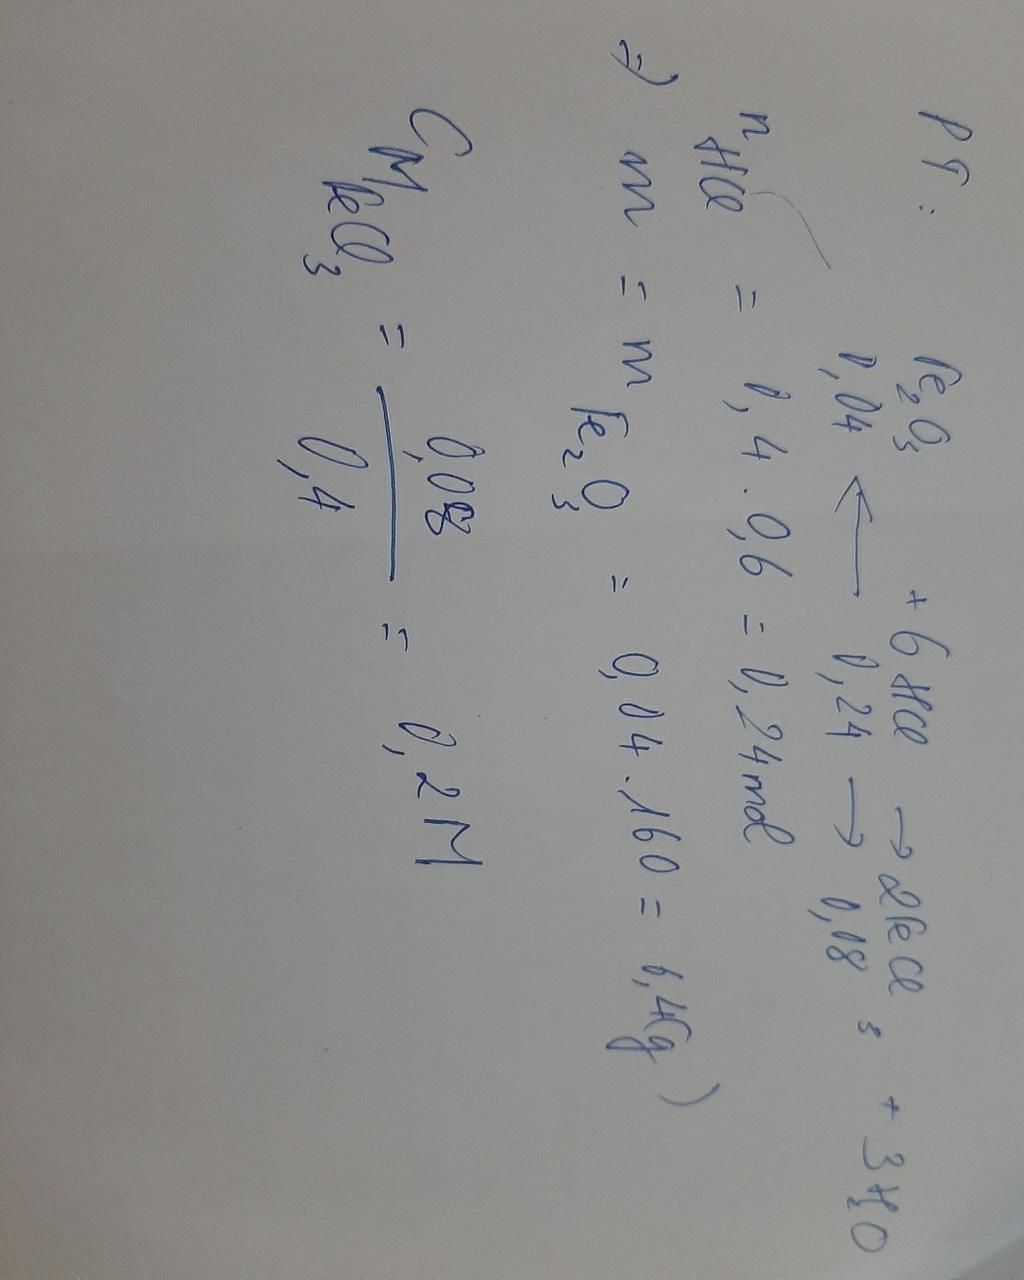 PT: Fe₂O₃ + 6HCl → 2FeCl₃ + 3H₂O
0,04 ← 0,24 → 0,08
nHCl = 0,4 . 0,6 = 0,24 mol
⇒ m = mFe₂O₃ = 0,04 . 160 = 6,4 (g)
CM FeCl₃ = 0,08 / 0,4 = 0,2 M